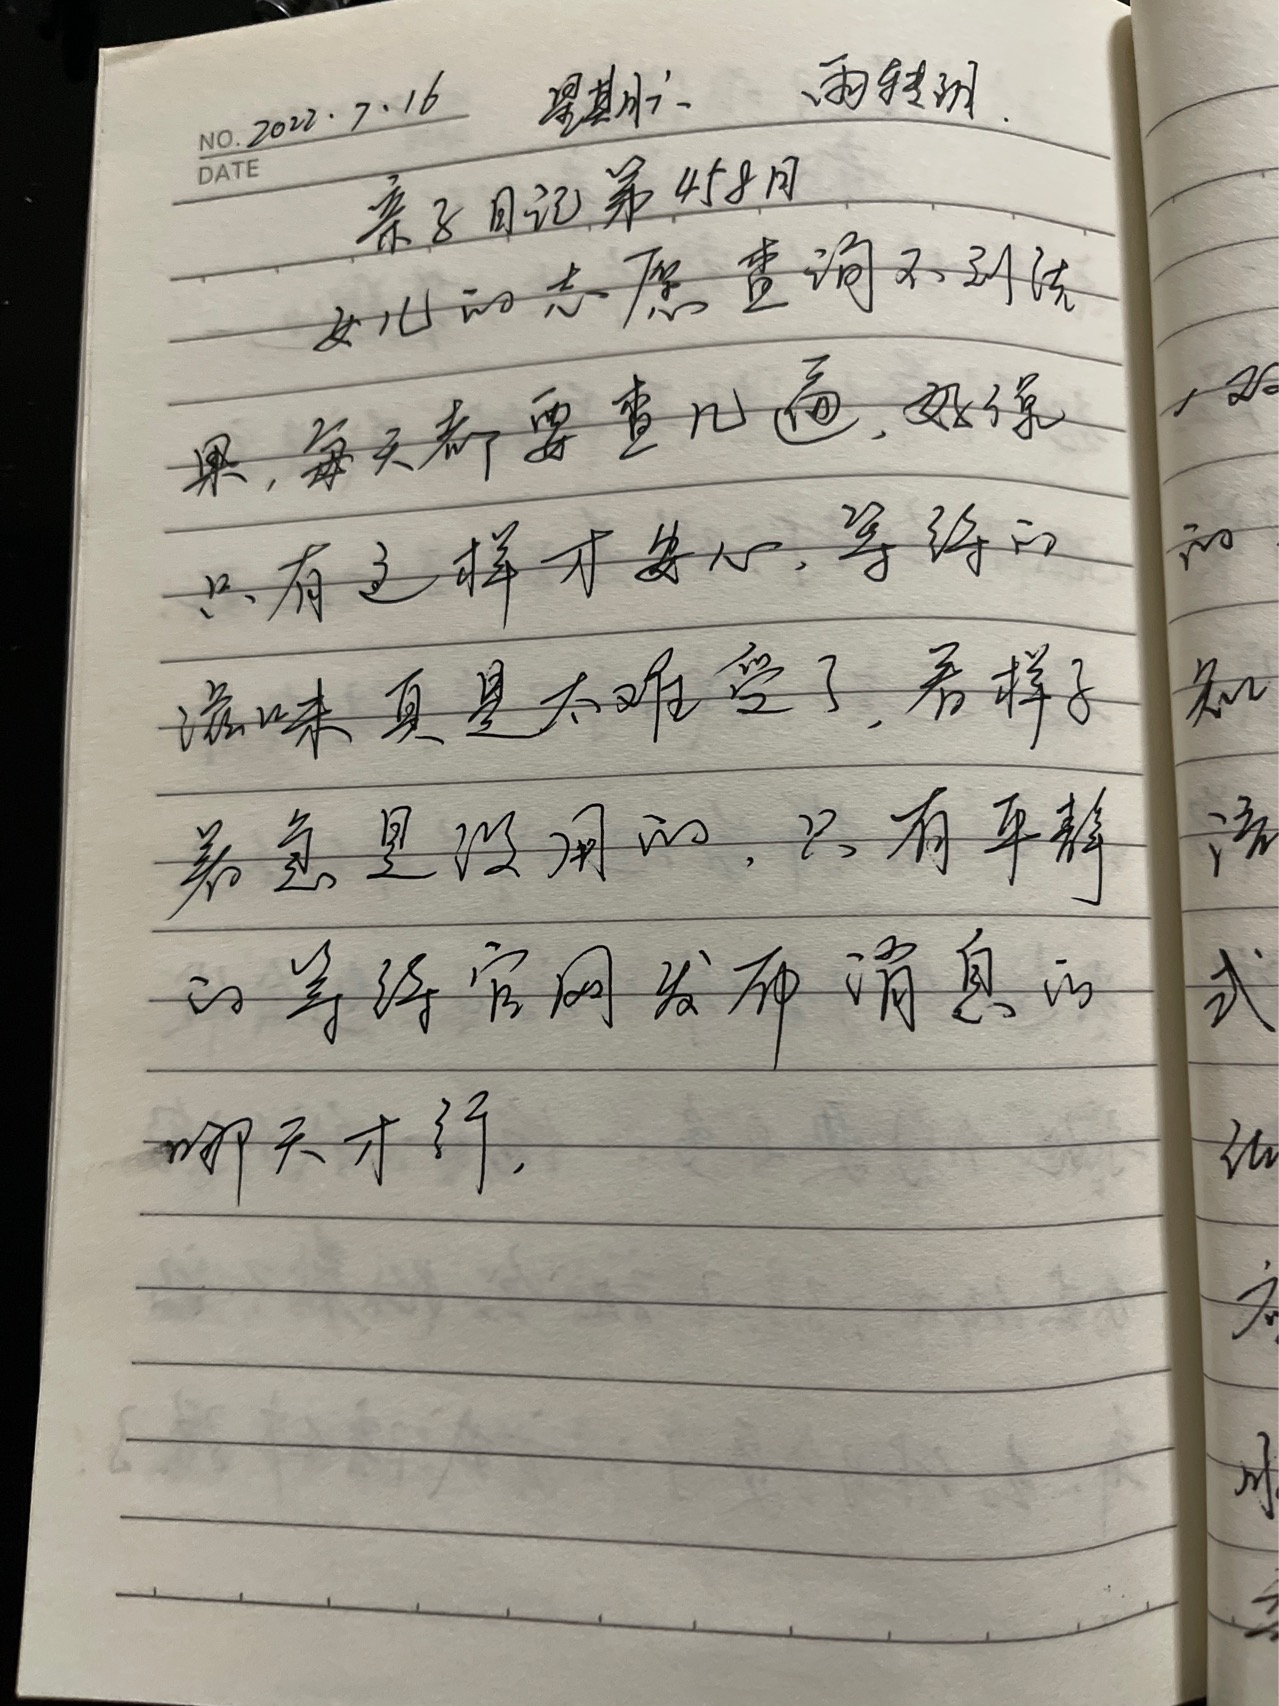 NO. 2022.7.16 星期六 雨转阴.
DATE
亲子日记第458日
女儿的志愿查询不到结
果,每天都要查几遍,好像
只有这样才安心,等待的
滋味真是太难受了,看样子
着急是没用的,只有平静
的等待官网发布消息的
哪天才行.
的
知
语
式